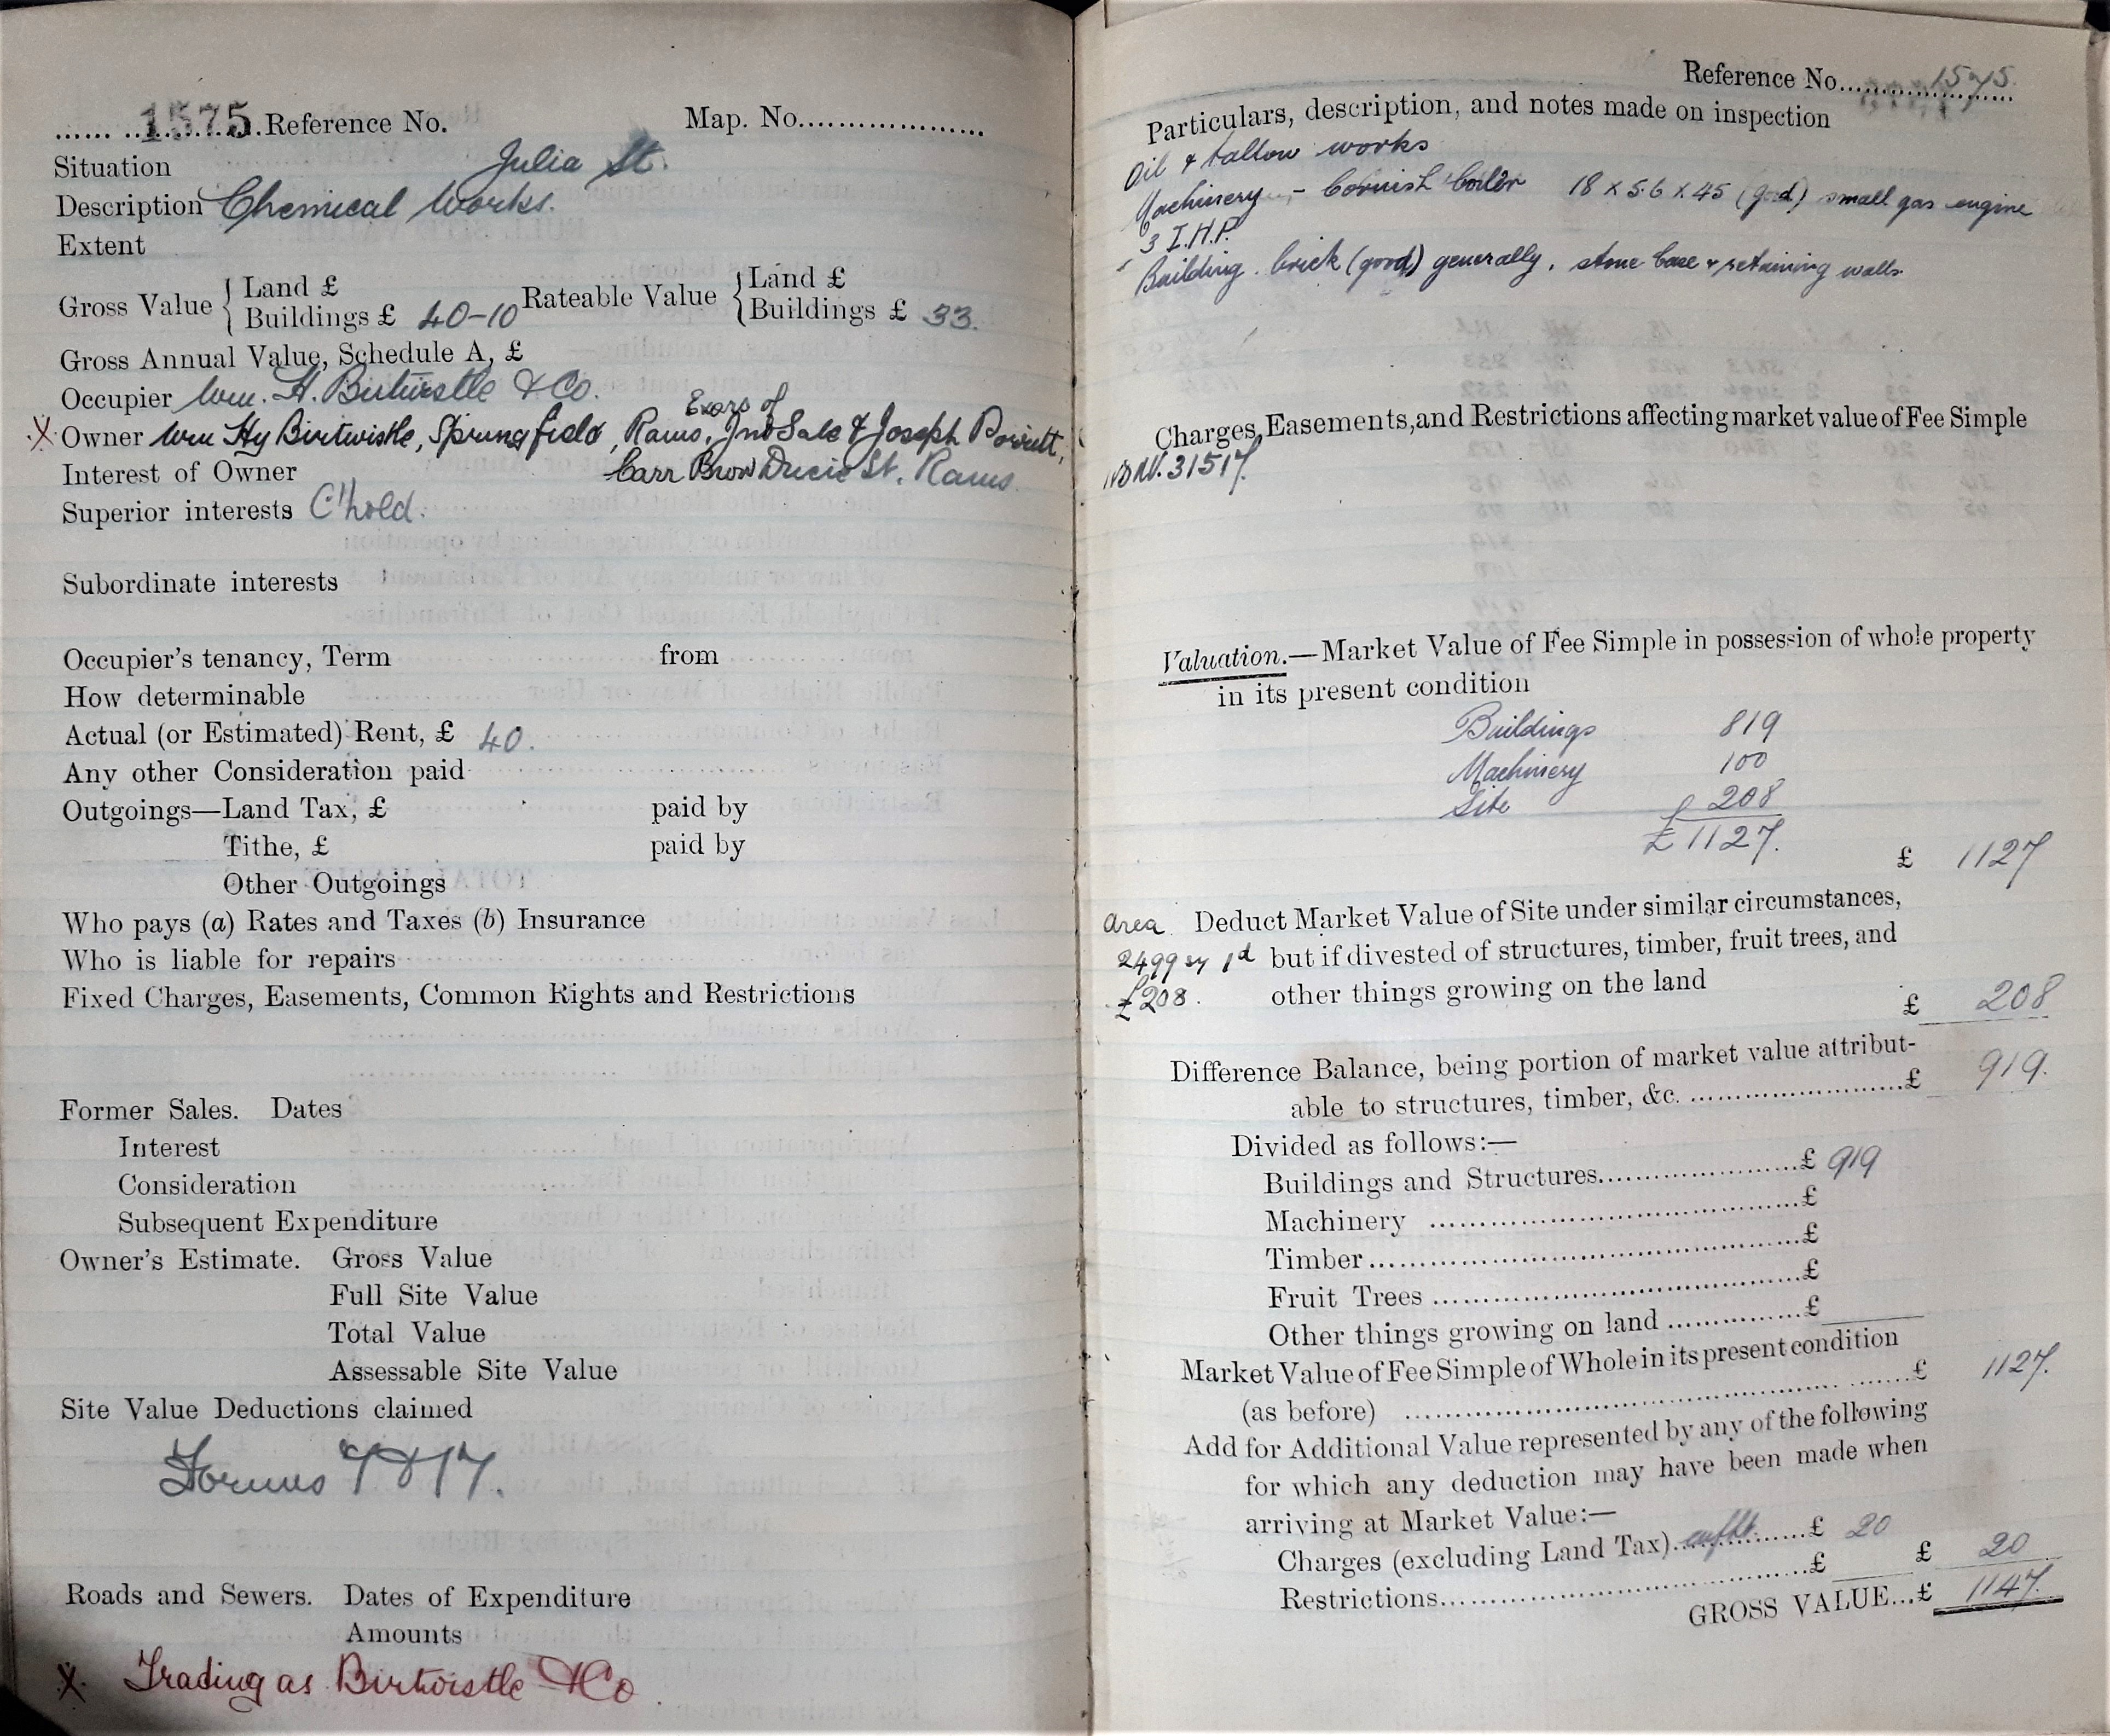 1575 Reference No. Map. No.
Situation Julia St.
Description Chemical Works.
Extent
Gross Value { Land £ Rateable Value { Land £
Buildings £ 40-10 Buildings £ 33.
Gross Annual Value, Schedule A, £
Occupier Wm. H. Birtwistle & Co.
Exors of
X Owner Wm Hy Birtwistle, Springfield, Rams. Jno Sale & Joseph Porritt,
Interest of Owner Carr Brow Ducie St. Rams.
Superior interests C'hold.
Subordinate interests
Occupier's tenancy, Term from
How determinable
Actual (or Estimated) Rent, £ 40.
Any other Consideration paid
Outgoings—Land Tax, £ paid by
Tithe, £ paid by
Other Outgoings
Who pays (a) Rates and Taxes (b) Insurance
Who is liable for repairs
Fixed Charges, Easements, Common Rights and Restrictions
Former Sales. Dates
Interest
Consideration
Subsequent Expenditure
Owner's Estimate. Gross Value
Full Site Value
Total Value
Assessable Site Value
Site Value Deductions claimed
Forms 7 & 17.
Roads and Sewers. Dates of Expenditure
Amounts
X. Trading as Birtwistle & Co.
Reference No. 1575.
Particulars, description, and notes made on inspection
Oil & tallow works
Machinery - Cornish boiler 18 x 5.6 x 45 (good) small gas engine
3 I.H.P.
Building. brick (good) generally, stone base & retaining walls.
Charges, Easements, and Restrictions affecting market value of Fee Simple
31517.
Valuation.—Market Value of Fee Simple in possession of whole property
in its present condition
Buildings 819
Machinery 100
Site £ 208
£ 1127.
£ 1127
area Deduct Market Value of Site under similar circumstances,
2499 sy 1d but if divested of structures, timber, fruit trees, and
£208. other things growing on the land
£ 208
Difference Balance, being portion of market value attribut-
able to structures, timber, &c. £ 919.
Divided as follows:—
Buildings and Structures £ 919
Machinery £
Timber £
Fruit Trees £
Other things growing on land £
Market Value of Fee Simple of Whole in its present condition
(as before) £ 1127.
Add for Additional Value represented by any of the following
for which any deduction may have been made when
arriving at Market Value:—
Charges (excluding Land Tax) £ 20 £ 20
Restrictions £
GROSS VALUE...£ 1147.